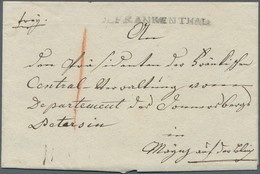 frey
FRANKENTHAL
An
den Präsidenten der Fränkischen
Central Verwaltung vom
Departement des Donnersbergs
in
auf der